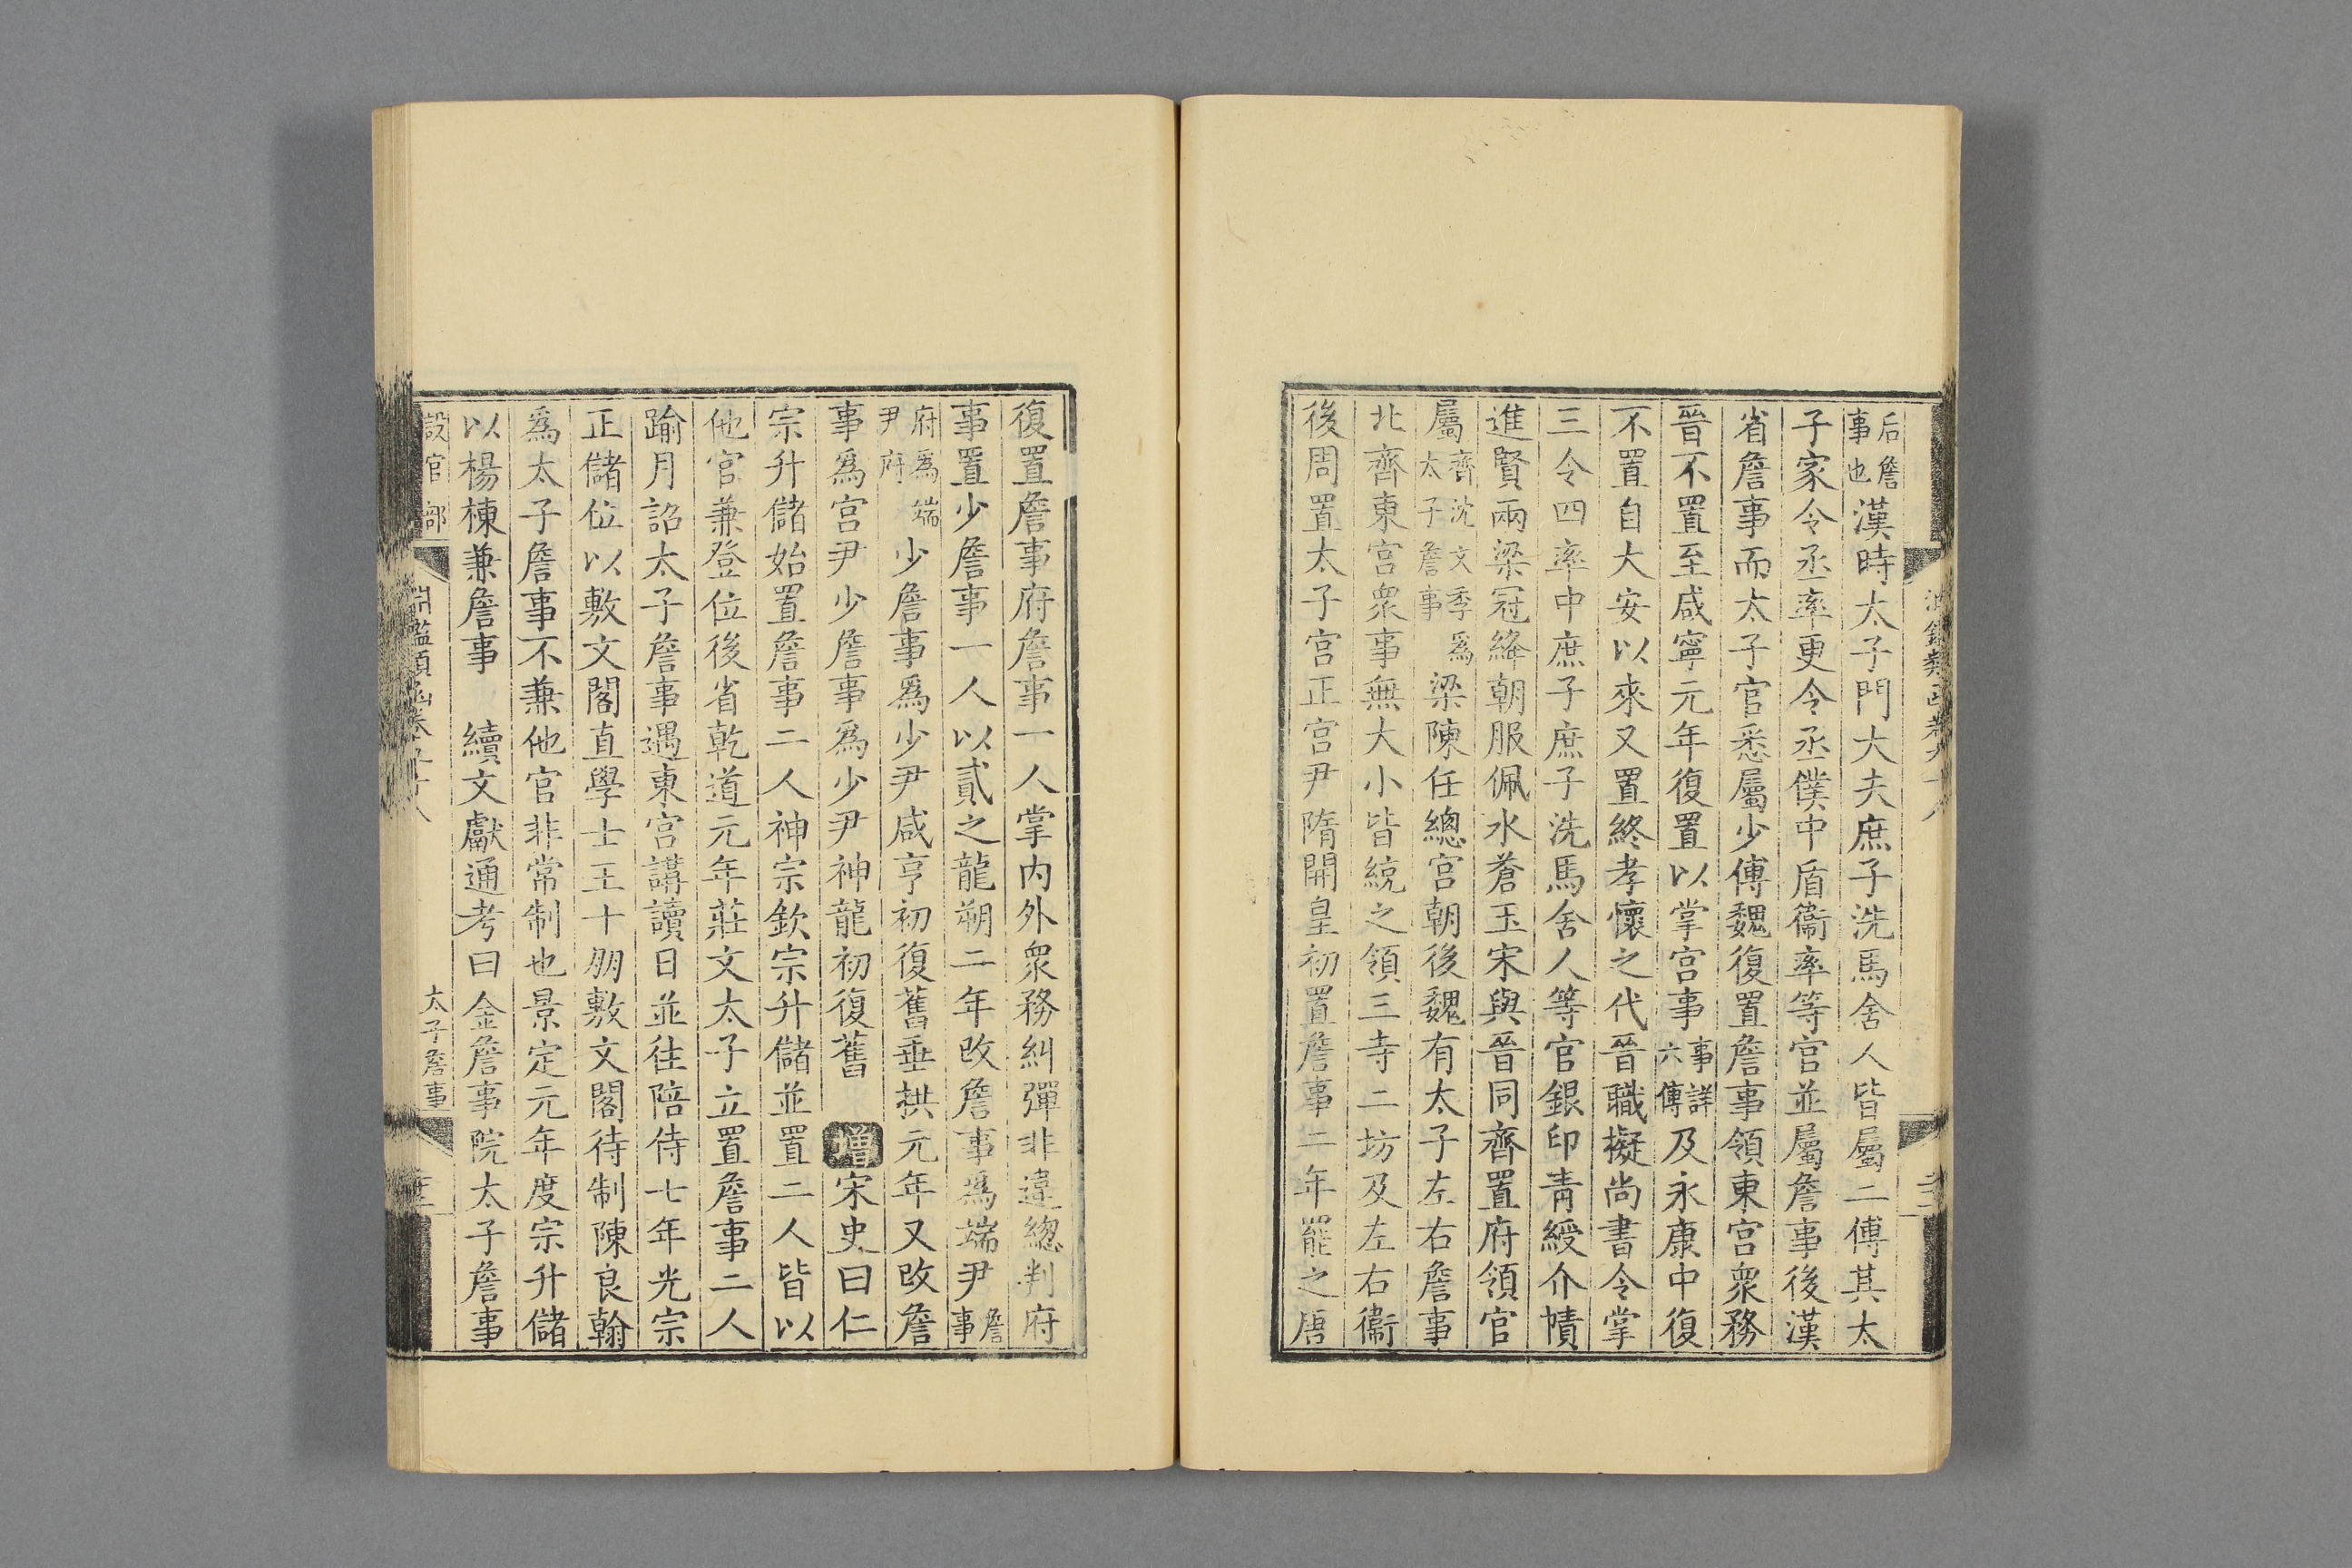 后詹事也漢時太子門大夫庶子洗馬舍人皆屬二傅其太
子家令丞率更令丞僕中盾衞率等官並屬詹事後漢
省詹事而太子官悉屬少傅魏復置詹事領東宮眾務
晉不置至咸寧元年復置以掌宮事事詳六傅及永康中復
不置自大安以來又置終孝懷之代晉職擬尚書令掌
三令四率中庶子庶子洗馬舍人等官銀印青綬介幘
進賢兩梁冠絳朝服佩水蒼玉宋與晉同齊置府領官
屬齊沈文季爲太子詹事梁陳任總宮朝後魏有太子左右詹事
北齊東宮眾事無大小皆統之領三寺二坊及左右衞
後周置太子宮正宮尹隋開皇初置詹事二年罷之唐
復置詹事府詹事一人掌内外眾務糾彈非違總判府
事置少詹事一人以貳之龍朔二年改詹事爲端尹詹事
府爲端尹府少詹事爲少尹咸亨初復舊垂拱元年又改詹
事爲宮尹少詹事爲少尹神龍初復舊 增宋史曰仁
宗升儲始置詹事二人神宗欽宗升儲並置二人皆以
他官兼登位後省乾道元年莊文太子立置詹事二人
踰月詔太子詹事遇東宮講讀日並往陪侍七年光宗
正儲位以敷文閣直學士王十朋敷文閣待制陳良翰
爲太子詹事不兼他官非常制也景定元年度宗升儲
以楊棟兼詹事 續文獻通考曰金詹事院太子詹事
設官部
太子詹事